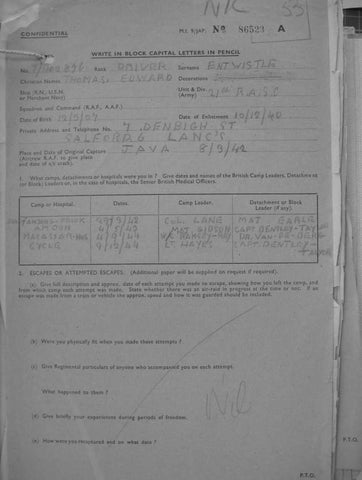 NK 53
CONFIDENTIAL
M.I. 9/JAP. No 86523 A
WRITE IN BLOCK CAPITAL LETTERS IN PENCIL.
No. Rank DRIVER Surname ENTWISTLE
Christian Names THOMAS EDWARD Decorations
Ship (R.N., U.S.N. or Merchant Navy) Unit & Div. (Army) R.A.S.C.
Squadron and Command (R.A.F., A.A.F.)
Date of Birth 12/5/07 Date of Enlistment 10/12/40
Private Address and Telephone No. 7 DENBIGH ST
SALFORD 6 LANCS
Place and Date of Original Capture JAVA 8/3/42
(Aircrew R.A.F. to give place
and date of a/c crash).
1. What camps, detachments or hospitals were you in? Give dates and names of the British Camp Leaders, Detachment
(or Block) Leaders or, in the case of hospitals, the Senior British Medical Officers.
Camp or Hospital. Dates. Camp Leader. Detachment or Block Leader (if any).
TANJONG-PRIOK COL. LANE
MAJ. GIBSON
LT HAYES
2. ESCAPES OR ATTEMPTED ESCAPES. (Additional paper will be supplied on request if required).
(a) Give full description and approx. date of each attempt you made to escape, showing how you left the camp, and
from which camp each attempt was made. State whether there was an air-raid in progress at the time or not. If an
escape was made from a train or vehicle the approx. speed and how it was guarded should be included.
(b) Were you physically fit when you made these attempts?
(c) Give Regimental particulars of anyone who accompanied you on each attempt.
What happened to them?
Nil
(d) Give briefly your experiences during periods of freedom.
(e) How were you recaptured and on what date?
P.T.O.
P.T.O.